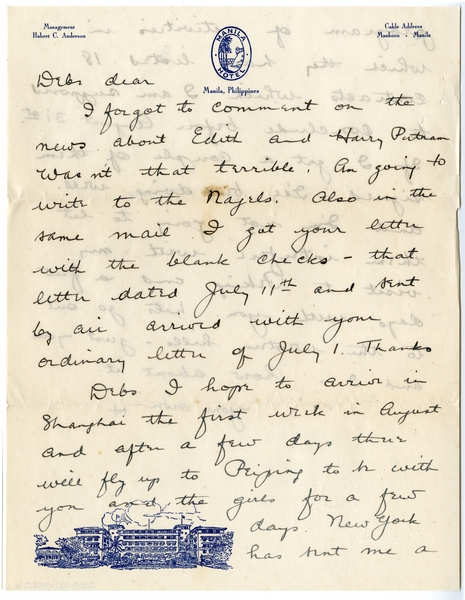 Management
Hubert C. Anderson
MANILA
HOTEL
Manila, Philippines
Cable Address
Manhotel - Manila
Debs dear
I forgot to comment on the
news about Edith and Harry Putnam
Wasnt that terrible. Am going to
write to the Nagels. Also in the
same mail I got your letter
with the blank checks - that
letter dated July 11th and sent
by air arrived with your
ordinary letter of July 1. Thanks
Debs I hope to arrive in
Shanghai the first week in August
and after a few days there
will fly up to Peiping to be with
you and the girls for a few
days. New York
has sent me a